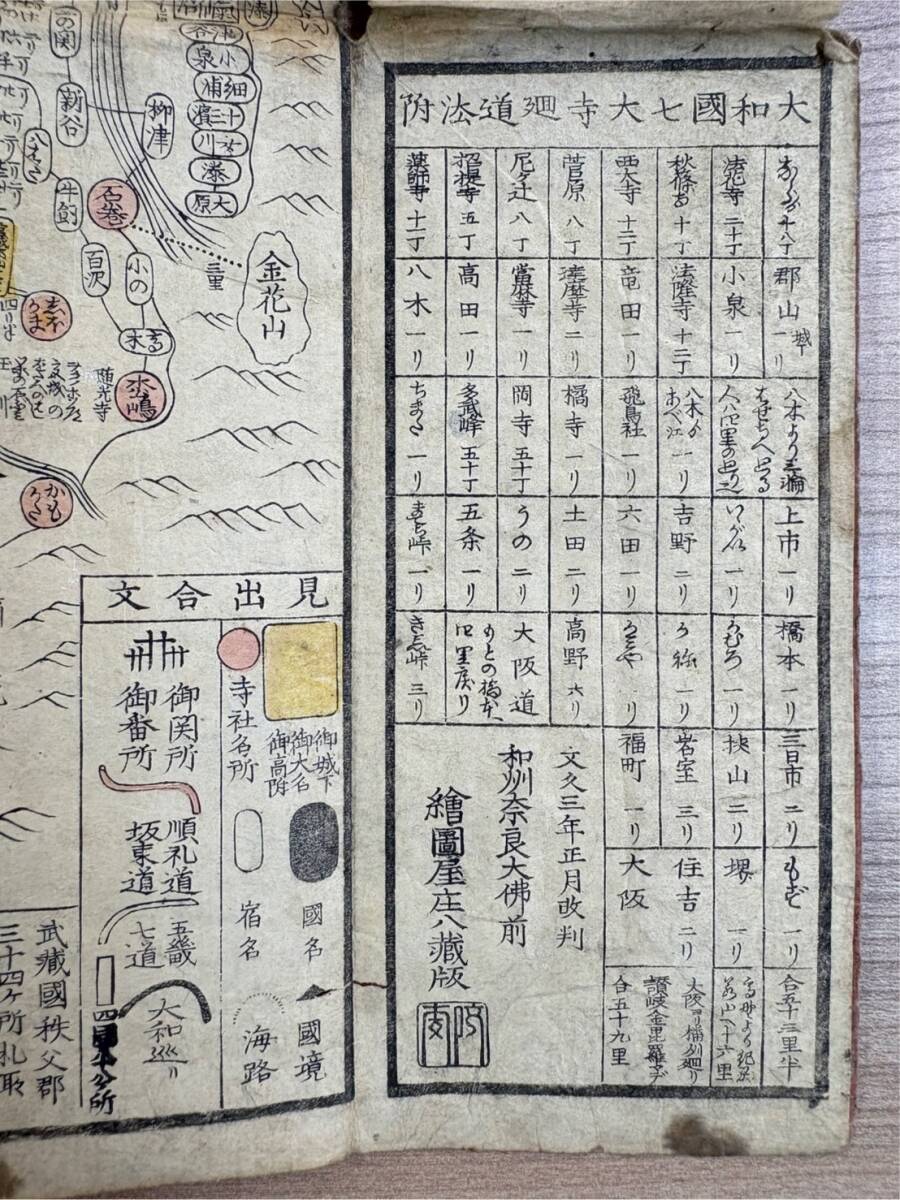 大和國七大寺廻道法附
なら五十八丁
法花寺 二十丁
秋篠寺 十丁
西大寺 十二丁
菅原 八丁
尼ヶ辻 八丁
招提寺 五丁
薬師寺 十二丁
郡山 城下 一リ
小泉 一リ
法隆寺 十二丁
竜田 一リ
達磨寺 二リ
當麻寺 一リ
高田 一リ
八木 一リ
八木より三輪
はせちへ出る
八木ゟ
あべ江 一リ
飛鳥社 一リ
橘寺 一リ
岡寺 五十丁
多武峰 五十丁
ちまた 一リ
上市 一リ
いゝがい 一リ
吉野 二リ
六田 一リ
土田 二リ
うの 二リ
五条 一リ
まち峠 一リ
橋本 一リ
かむろ 一リ
かね 一リ
かミや 一リ
高野 六リ
大阪道
もとの橋本
四里戻り
きミ峠 三リ
三日市 二リ
狭山 二リ
岩室 三リ
福町 一リ
もず 一リ
堺 一リ
住吉 二リ
大阪
合五十三里半
高野より紀州
若山へ十六里
大阪ヨリ播州廻リ
讃岐金毘羅マデ
合五十九里
文久三年正月改判
和州奈良大佛前
繪圖屋庄八藏版
見出合文
御城下
御大名
御高附
寺社名所
國名
宿名
國境
海路
御関所
御番所
順礼道
坂東道
五畿
七道
大和巡リ
武藏國秩父郡
三十四ヶ所札取
一の関
新谷
柳津
石巻
牛釼
百沢
小の
高木
松嶋
金花山
三里
小泉
細浦
十三濱
女川
湊
大原
随光寺
かもうた